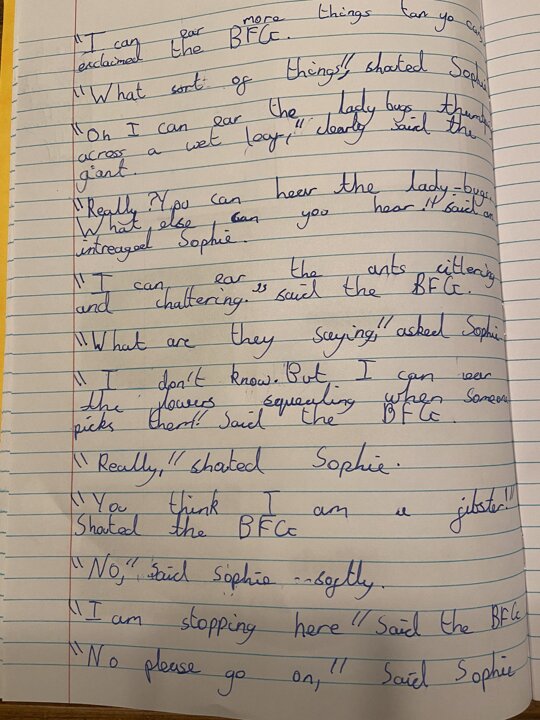 "I can ear more things tan yo can"
exclaimed the BFG.
"What sort of things", shated Sophie
"Oh I can ear the lady bugs thumping
across a wet leaf," clearly said the
giant.
"Really? You can hear the lady-bugs.
What else can you hear!" said an
intreaged Sophie.
"I can ear the ants cittering
and chattering." said the BFG.
"What are they saying," asked Sophie.
"I don't know. But I can ear
the flowers squealing when someone
picks them!" Said the BFG.
"Really," shated Sophie.
"You think I am a fibster!"
Shated the BFG
"No," Said Sophie softly.
"I am stopping here" Said the BFG
"No please go on," Said Sophie